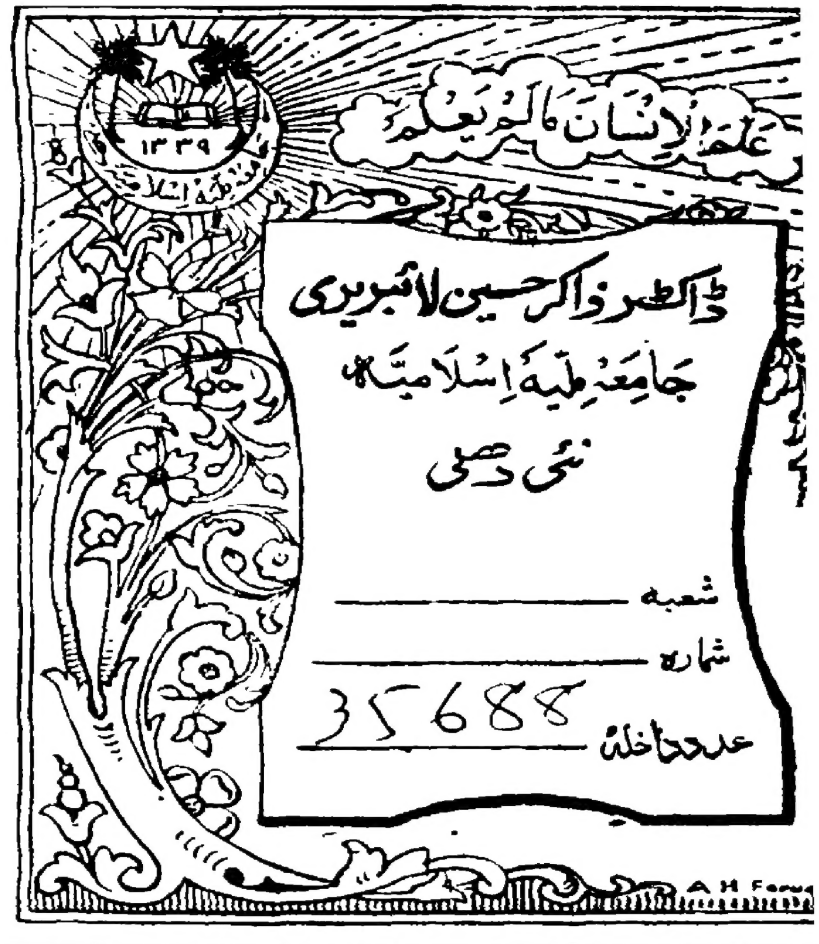 ۱۳۳۹
جامعہ ملیہ اسلامیہ
عَلَّمَ الْاِنْسَانَ مَا لَمْ يَعْلَمْ
ڈاکٹر ذاکر حسین لائبریری
جَامِعَہ مِلّیَہ اِسْلَامیَّہ
نئی دہلی
شعبہ
شمارہ
عدد داخلہ 35688
A H Faruq